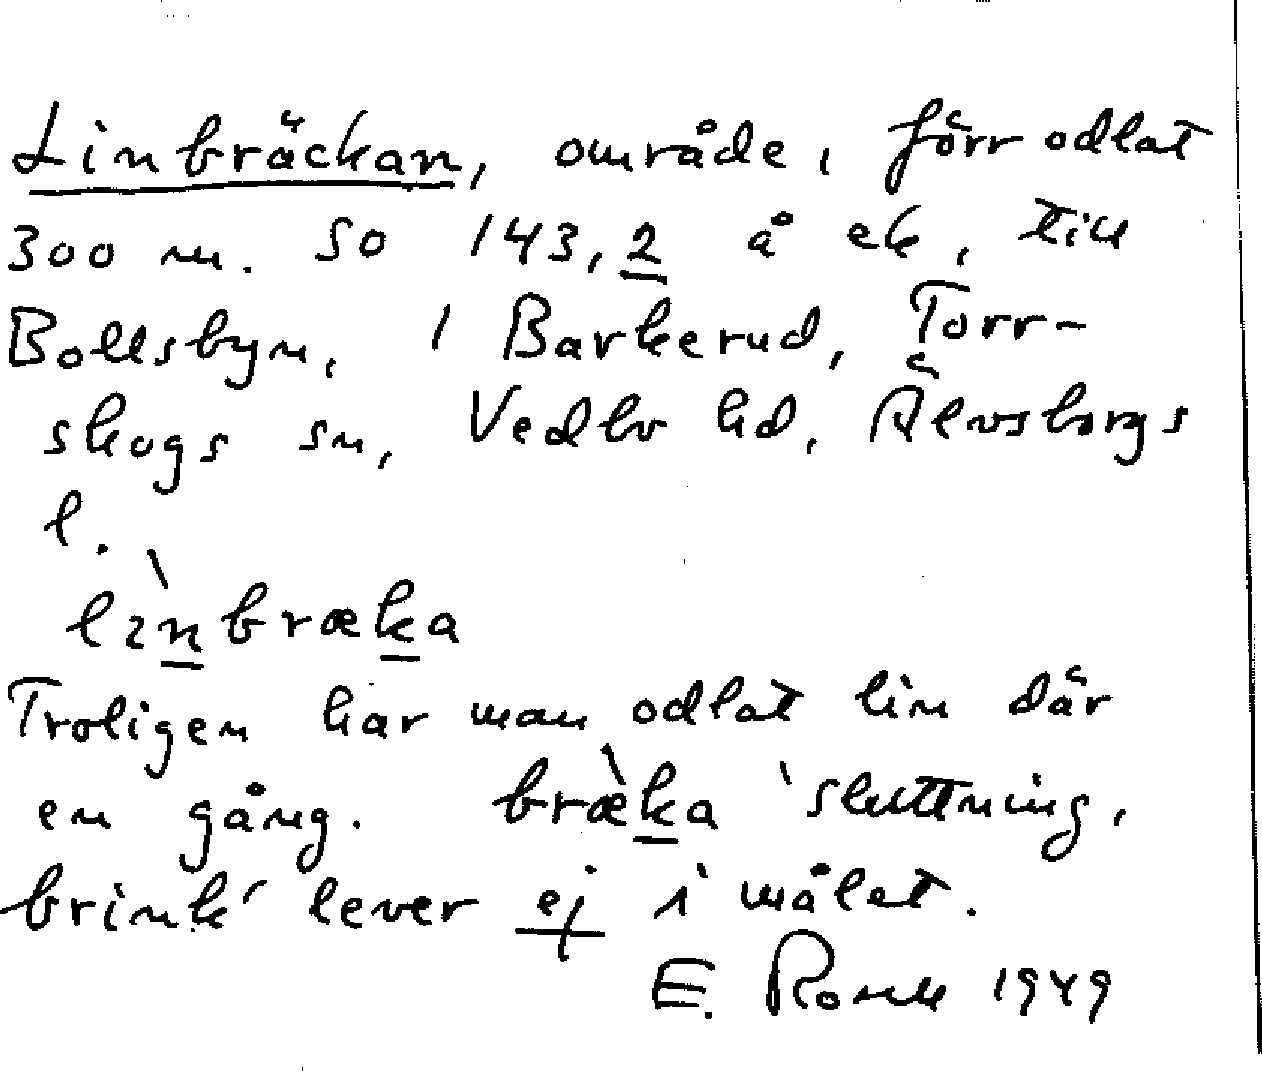 Linbräckan, område, förr odlat
300 m. SO 143,2 å ek, till
Bollsbyn, 1 Barkerud, Torr-
skogs sn, Vedbo hd, Älvsborgs
l.
lìnbræka
Troligen har man odlat lin där
en gång. bræ̀ka 'sluttning,
brink' lever ej i målet.
E. 1949